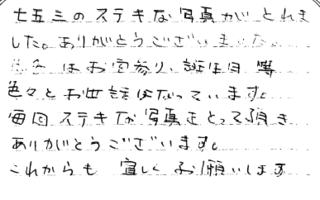 七五三のステキな写真がとれま
した。ありがとうございました。
はお宮参り、誕生日等
色々とお世話になっています。
毎回ステキな写真をとって頂き
ありがとうございます。
これからも 宜しくお願いします